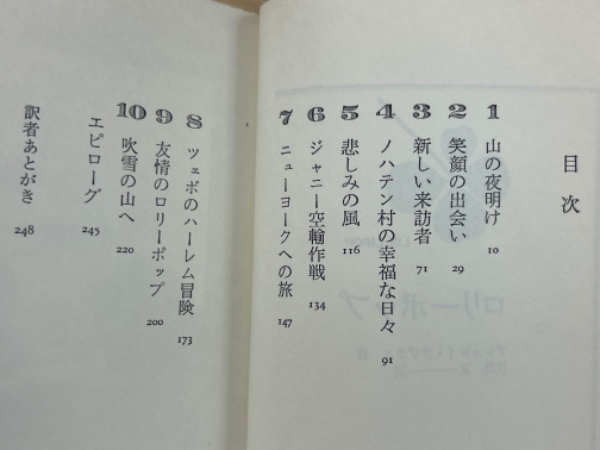 目次
1 山の夜明け 10
2 笑顔の出会い 29
3 新しい来訪者 71
4 ノハテン村の幸福な日々 91
5 悲しみの風 116
6 ジャニー空輸作戦 134
7 ニューヨークへの旅 147
8 ツェボのハーレム冒険 173
9 友情のロリーポップ 200
10 吹雪の山へ 220
エピローグ 245
訳者あとがき 248
ロリーポップ